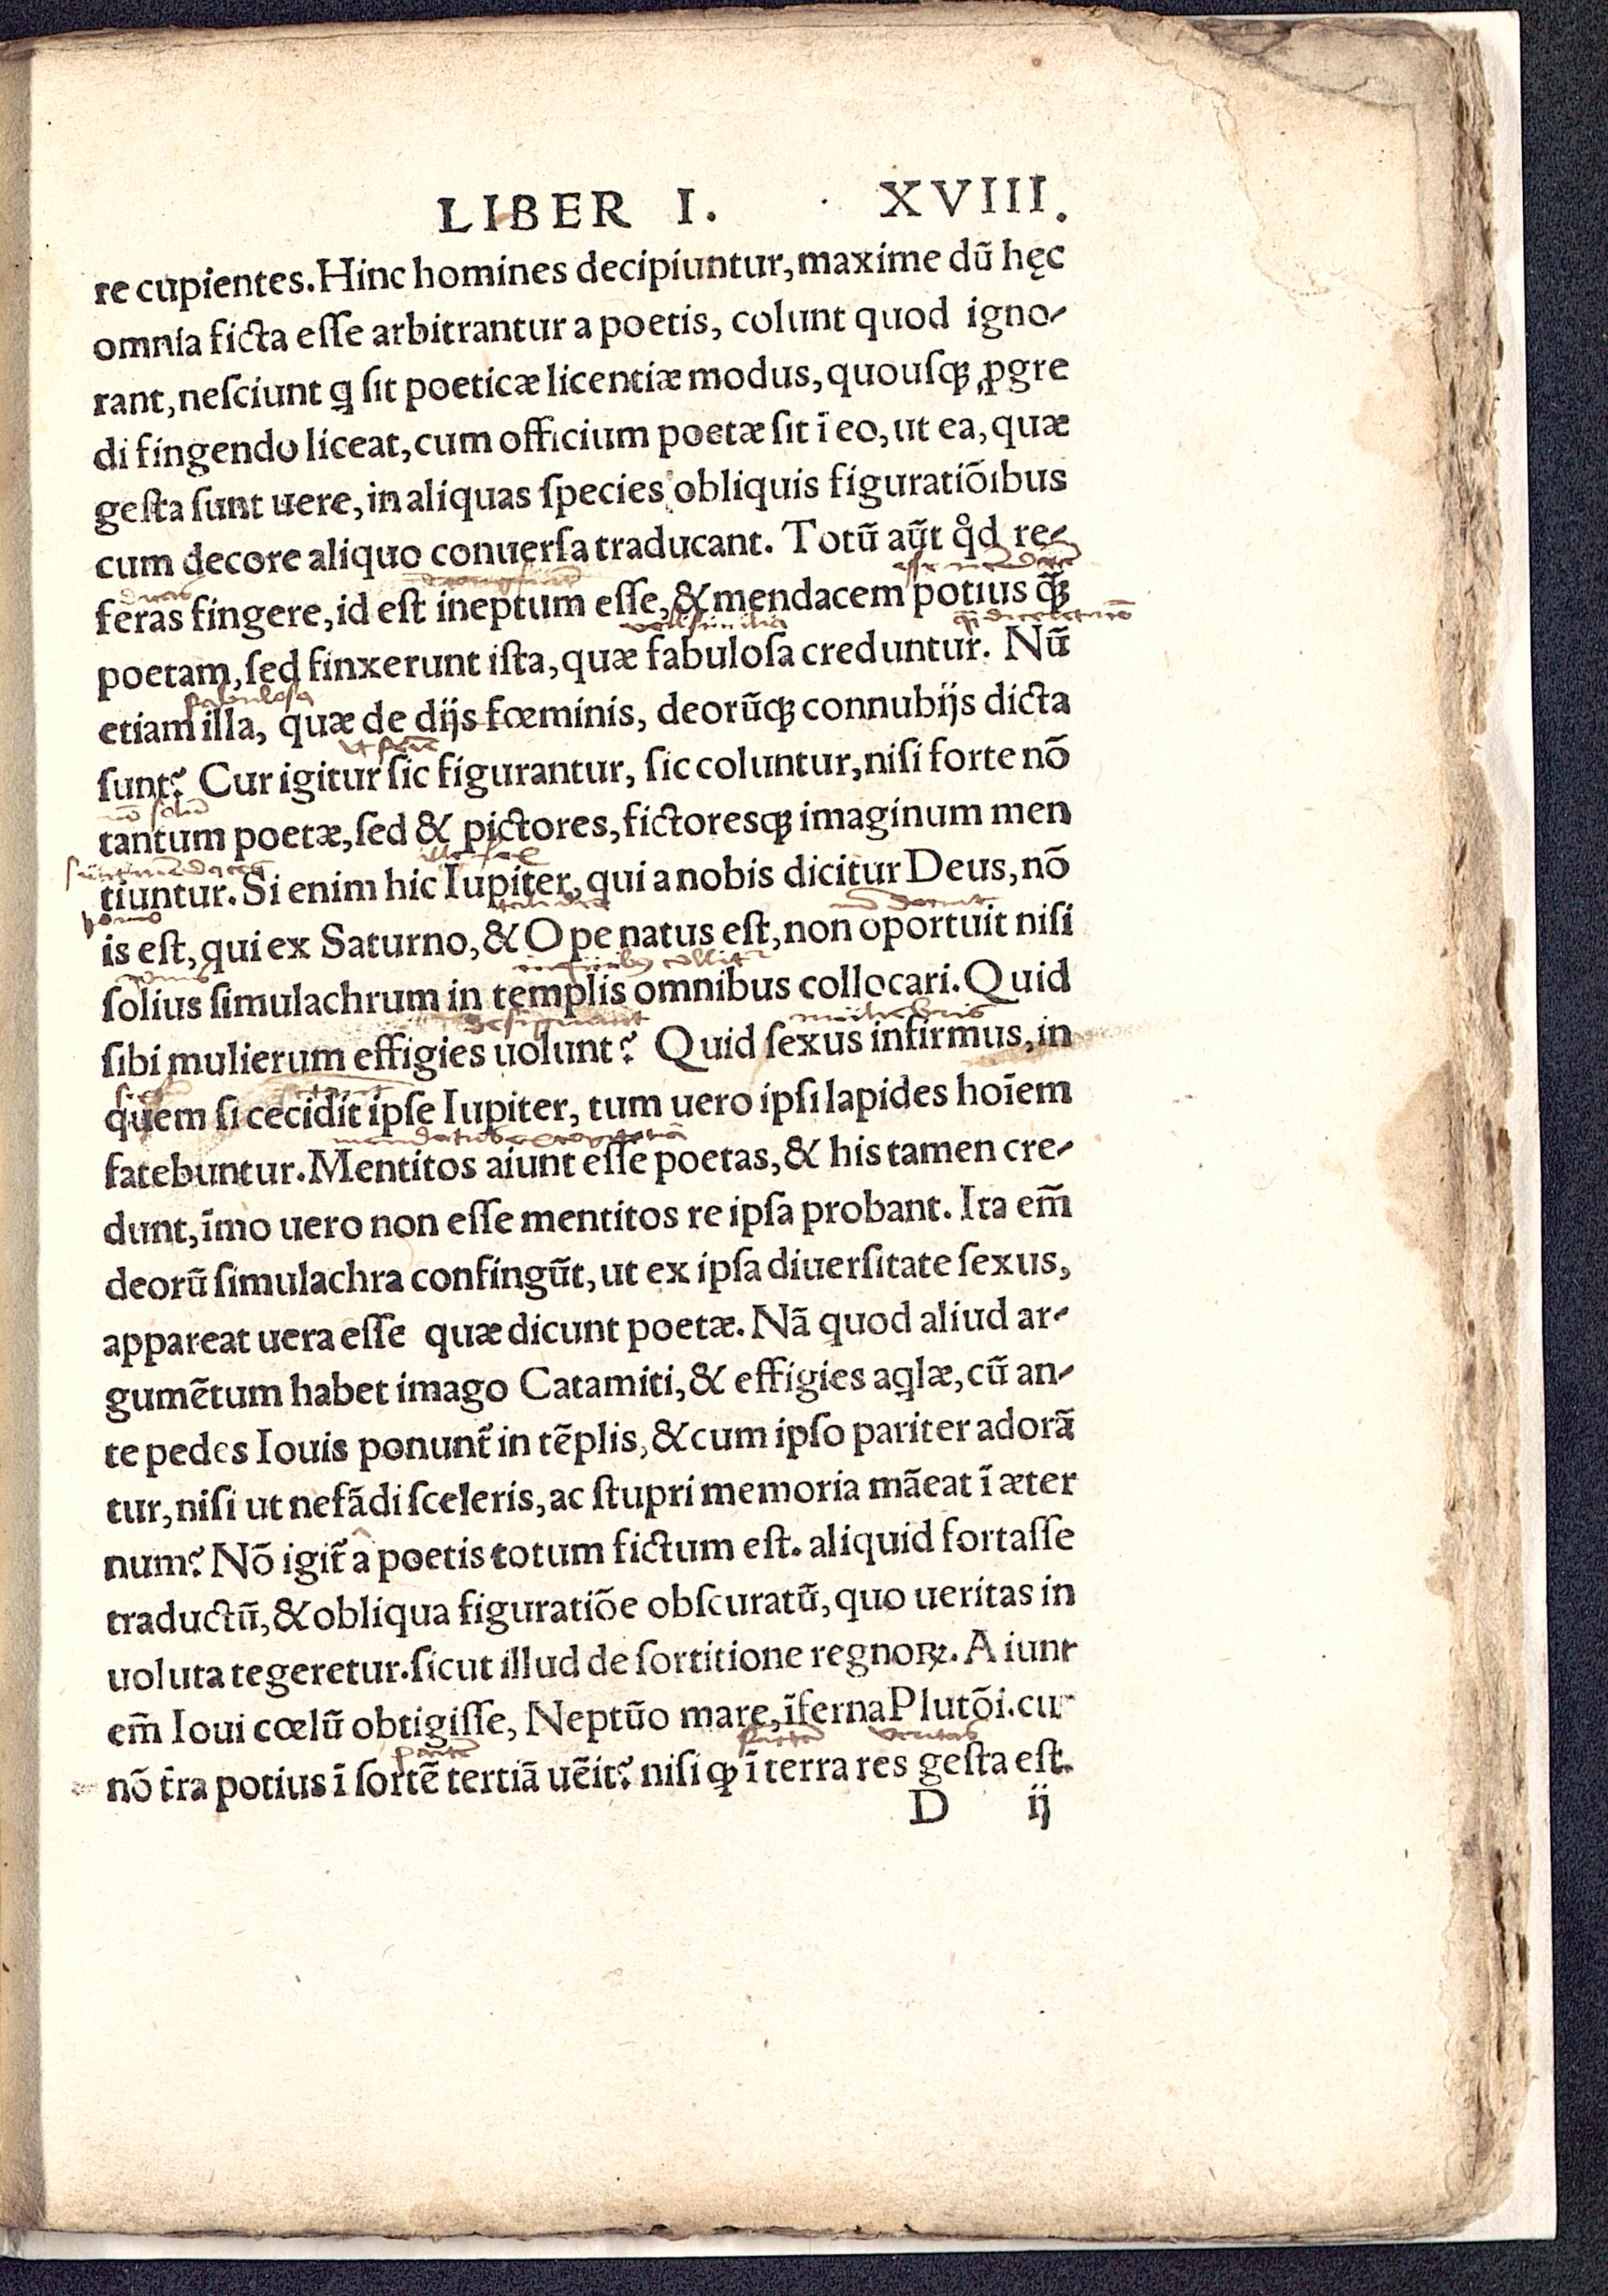 LIBER I. XVIII.
re cupientes. Hinc homines decipiuntur, maxime dũ hęc
omnia ficta eſſe arbitrantur a poetis, colunt quod igno-
rant, neſciunt ꝗ ſit poeticæ licentiæ modus, quouſqꝫ ꝓgre
di fingendo liceat, cum officium poetæ ſit ĩ eo, ut ea, quæ
geſta ſunt uere, in aliquas ſpecies obliquis figuratiõibus
cum decore aliquo conuerſa traducant. Totũ aũt qͦd re-
feras fingere, id eſt ineptum eſſe, & mendacem potius q̃ꝫ
poetam, ſed finxerunt iſta, quæ fabuloſa creduntur. Nũ
fabulosa
etiam illa, quæ de dijs fœminis, deorũqꝫ connubijs dicta
ſunt? Cur igitur ſic figurantur, ſic coluntur, niſi forte nõ
tantum poetæ, ſed & pictores, fictoresqꝫ imaginum men
tiuntur. Si enim hic Iupiter, qui a nobis dicitur Deus, nõ
homo
is eſt, qui ex Saturno, & Ope natus eſt, non oportuit niſi
ſolius ſimulachrum in templis omnibus collocari. Quid
ſibi mulierum effigies uolunt? Quid ſexus infirmus, in
quem ſi cecidit ipſe Iupiter, tum uero ipſi lapides hoĩem
fatebuntur. Mentitos aiunt eſſe poetas, & his tamen cre-
dunt, ĩmo uero non eſſe mentitos re ipſa probant. Ita em̃
deorũ ſimulachra confingũt, ut ex ipſa diuerſitate ſexus,
appareat uera eſſe quæ dicunt poetæ. Nã quod aliud ar-
gumẽtum habet imago Catamiti, & effigies aꝗlæ, cũ an-
te pedes Iouis ponunt̃ in tẽplis, & cum ipſo pariter adorã
tur, niſi ut nefãdi ſceleris, ac ſtupri memoria mãeat ĩ æter
num? Nõ igit̃ a poetis totum fictum eſt. aliquid fortaſſe
traductũ, & obliqua figuratiõe obſcuratũ, quo ueritas in
uoluta tegeretur. ſicut illud de ſortitione regnoꝝ. Aiunt
em̃ Ioui cœlũ obtigiſſe, Neptũo mare, ĩferna Plutõi. cur
veritas
nõ t̃ra potius ĩ ſortẽ tertiã uẽit? niſi ꝙ ĩ terra res geſta eſt.
D ij